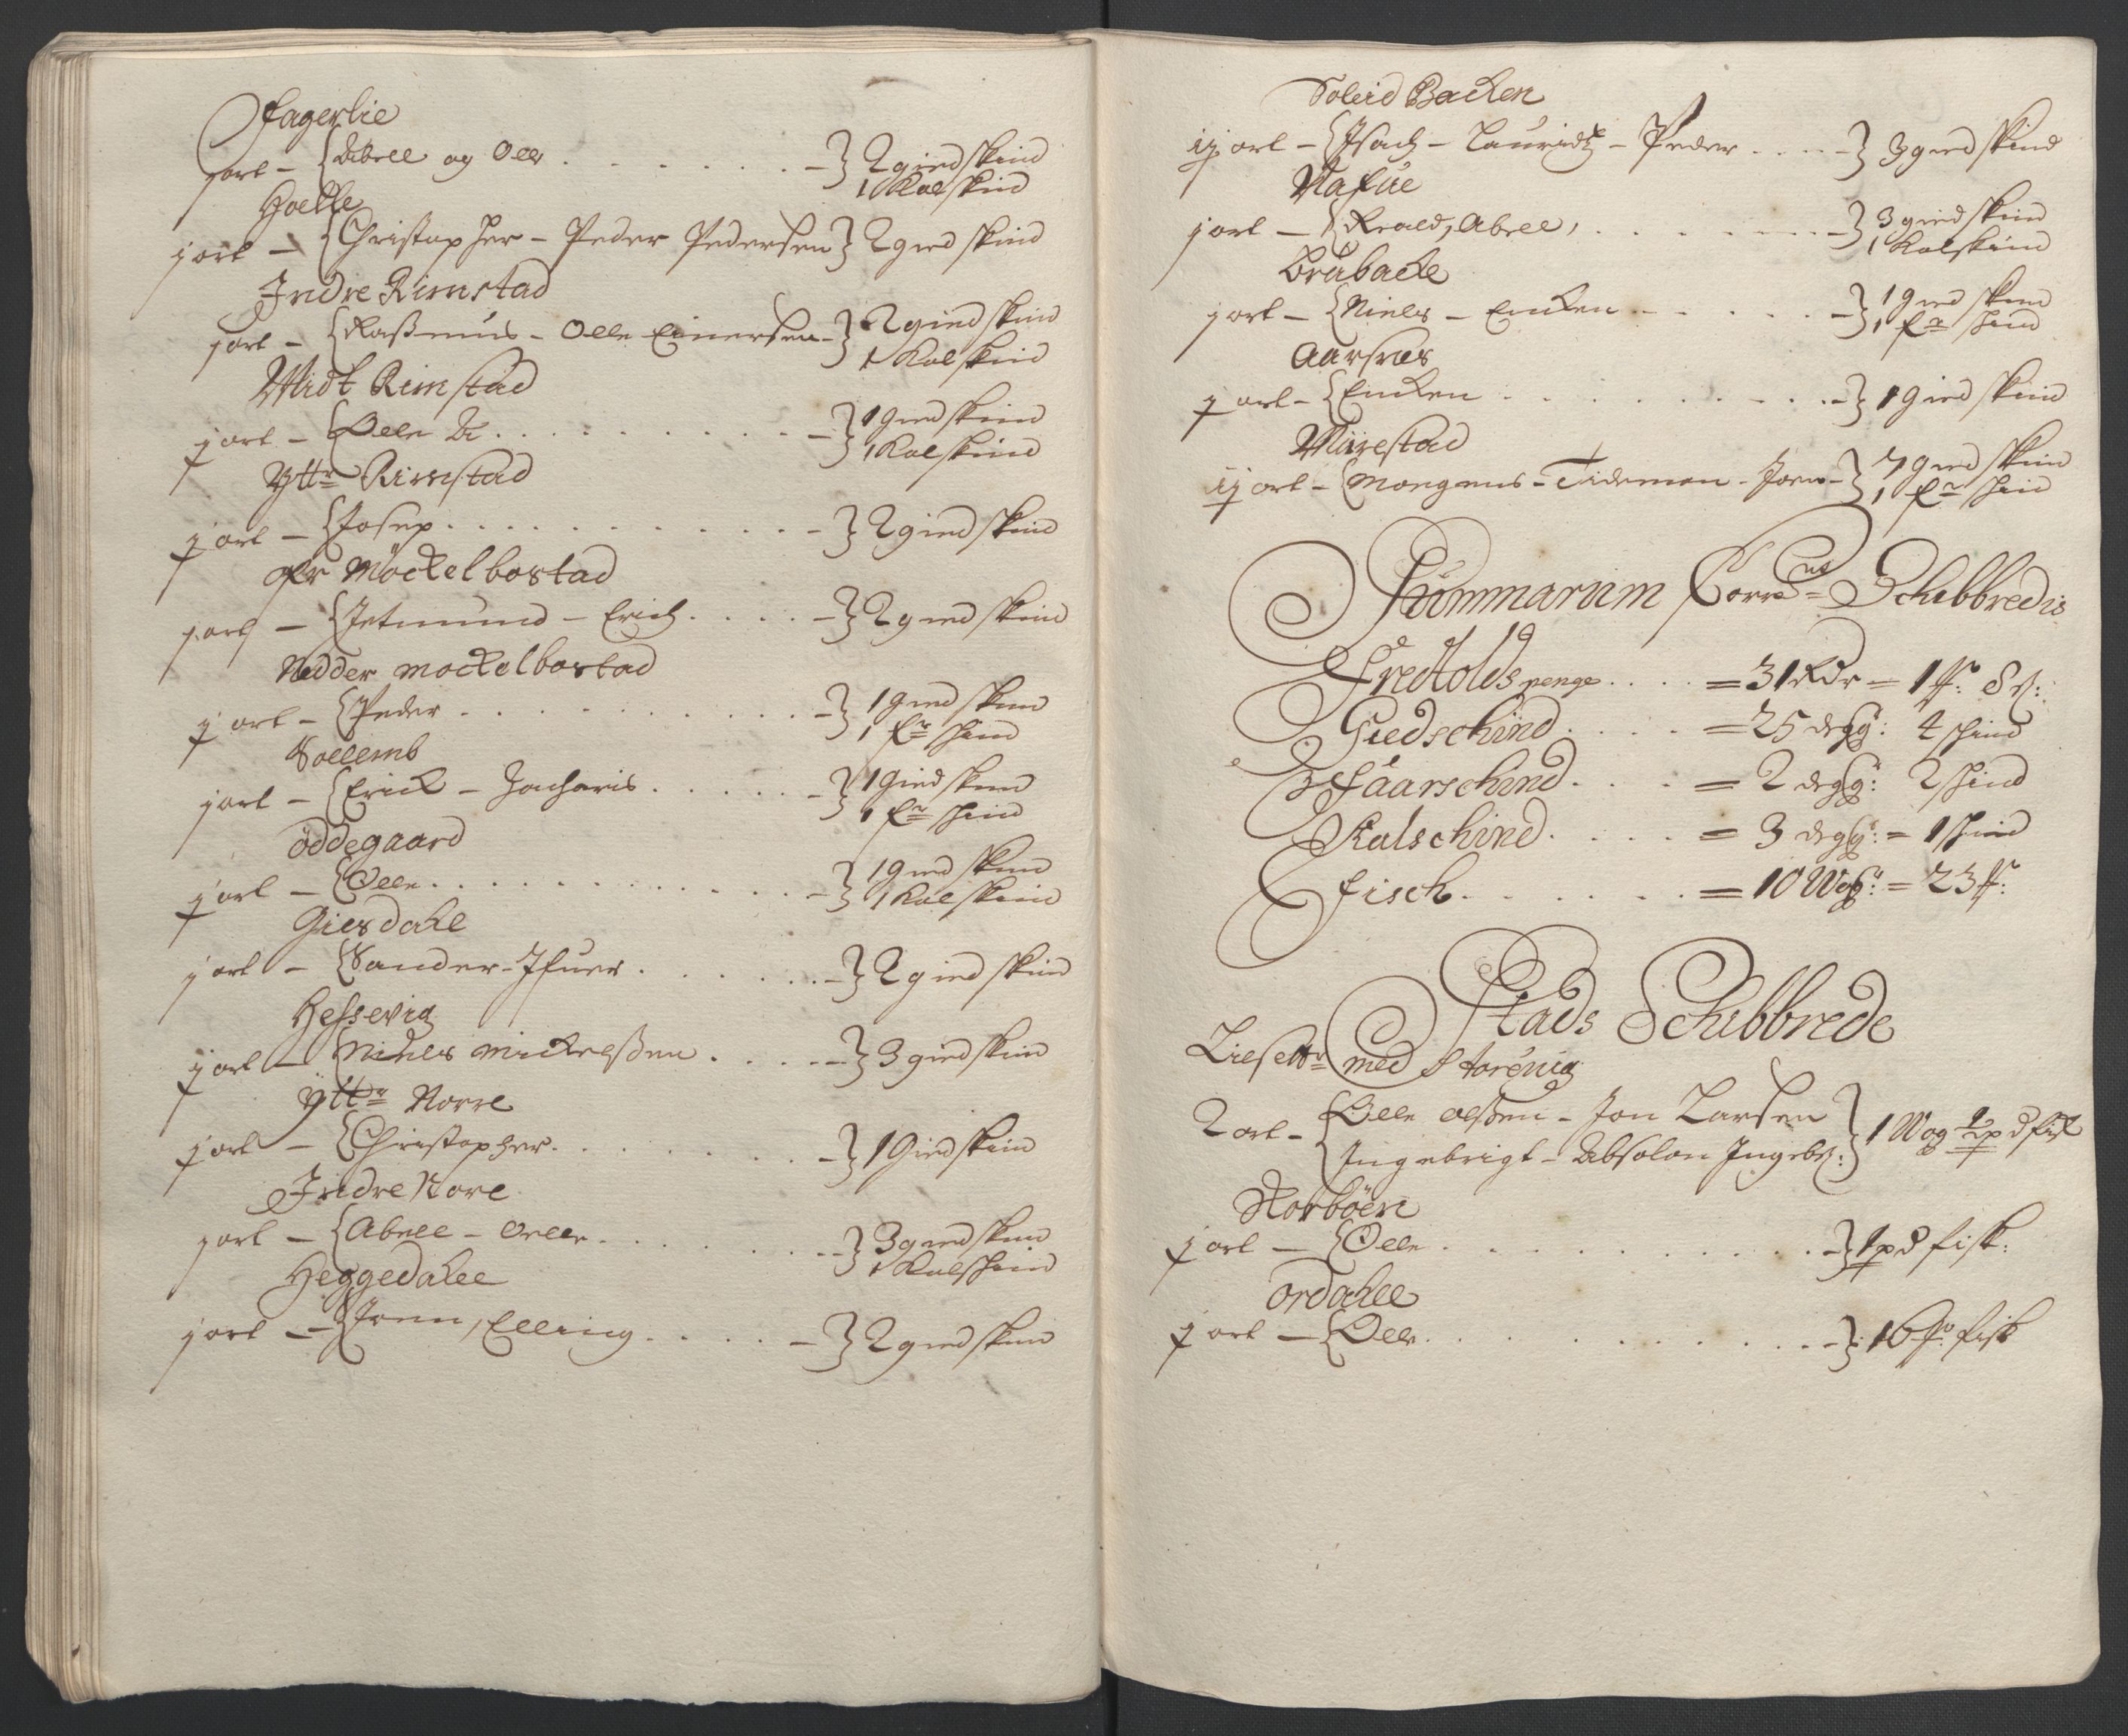 Fagerlie
j ort – { Abell og Olle . . . . . – } 2 gied skind
1 Kalskind
Hoelle
j ort – { Christopher – Peder Pedersen } 2 gied skind
Indre Rimstad
j ort – { Rasmus – Olle Einersen – } 2 gied skind
1 Kalskind
Midt Rimstad
j ort – { Olle A . . . . . – } 1 gied skind
1 Kalskind
Yttr Rimstad
j ort – { Josep . . . . . – } 2 gied skind
øfr Möckelbostad
j ort – { Jetmund – Erich . . . . – } 2 gied skind
Nedder Mockelbostad
j ort – { Peder . . . . . – } 1 gied skind
1 fr skind
Soellemb
j ort – { Erick – Zacharis . . . . – } 1 gied skind
1 fr skind
öddegaard
j ort – { Olle . . . . . – } 1 gied skind
1 Kalskind
Giesdahl
j ort – { Sander – Ifuer . . . . – } 2 gied skind
Hessevig
j ort – { Niels Mickelssen . . . . – } 3 gied skind
Yttr Norre
j ort – { Christopher . . . . . – } 1 Gied skind
Indre Nore
j ort – { Abell – Olle . . . . – } 3 gied skind
1 Kalskind
Heggedalle
j ort – { Joen, Elling . . . . – } 2 gied skind
Soleid Backen
ij ort – { Isach – Lauridtz – Peder . . . – } 3 gied skind
Nafue
j ort – { Roald, Abell, . . . . . – } 3 gied skind
1 Kalskind
Brubacke
j ort – { Niels – Encken . . . . – } 1 gied skind
1 fr skind
Aarsnes
j ort – { Encken . . . . . – } 1 gied skind
Myrestad
ij ort – { Mongens – Tideman – Joen – } 7 gied skind
1 fr skind
Summarum Schibbredis
Fredtolds penge . . . . = 31 Rdr = 1 ß: 8
Giedschind . . . . = 25 degger: 4 skind
Faarschind . . . . = 2 degger: 2 skind
Kalschind . . . . = 3 degger: = 1 skind
Fisch . . . . . = 10 Woger: = 23
Stads Schibbrede
Lilsettr med Storevig
2 ort – { Olle Olssen – Jon Larsen
Ingebrigt – Absolon Ingebr: } 1 Wog 1/2 pd fisk
Norböen
j ort – { Olle . . . . . – } 1 pd fisk:
Ordalle
j ort – { Olle . . . . . – } 16 fisk